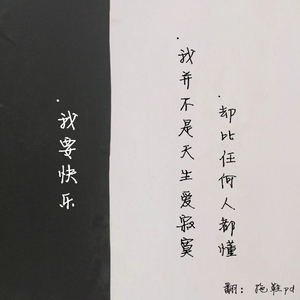 ·我要快乐
·我并不是天生爱寂寞
·却比任何人都懂
翻：拖鞋pd